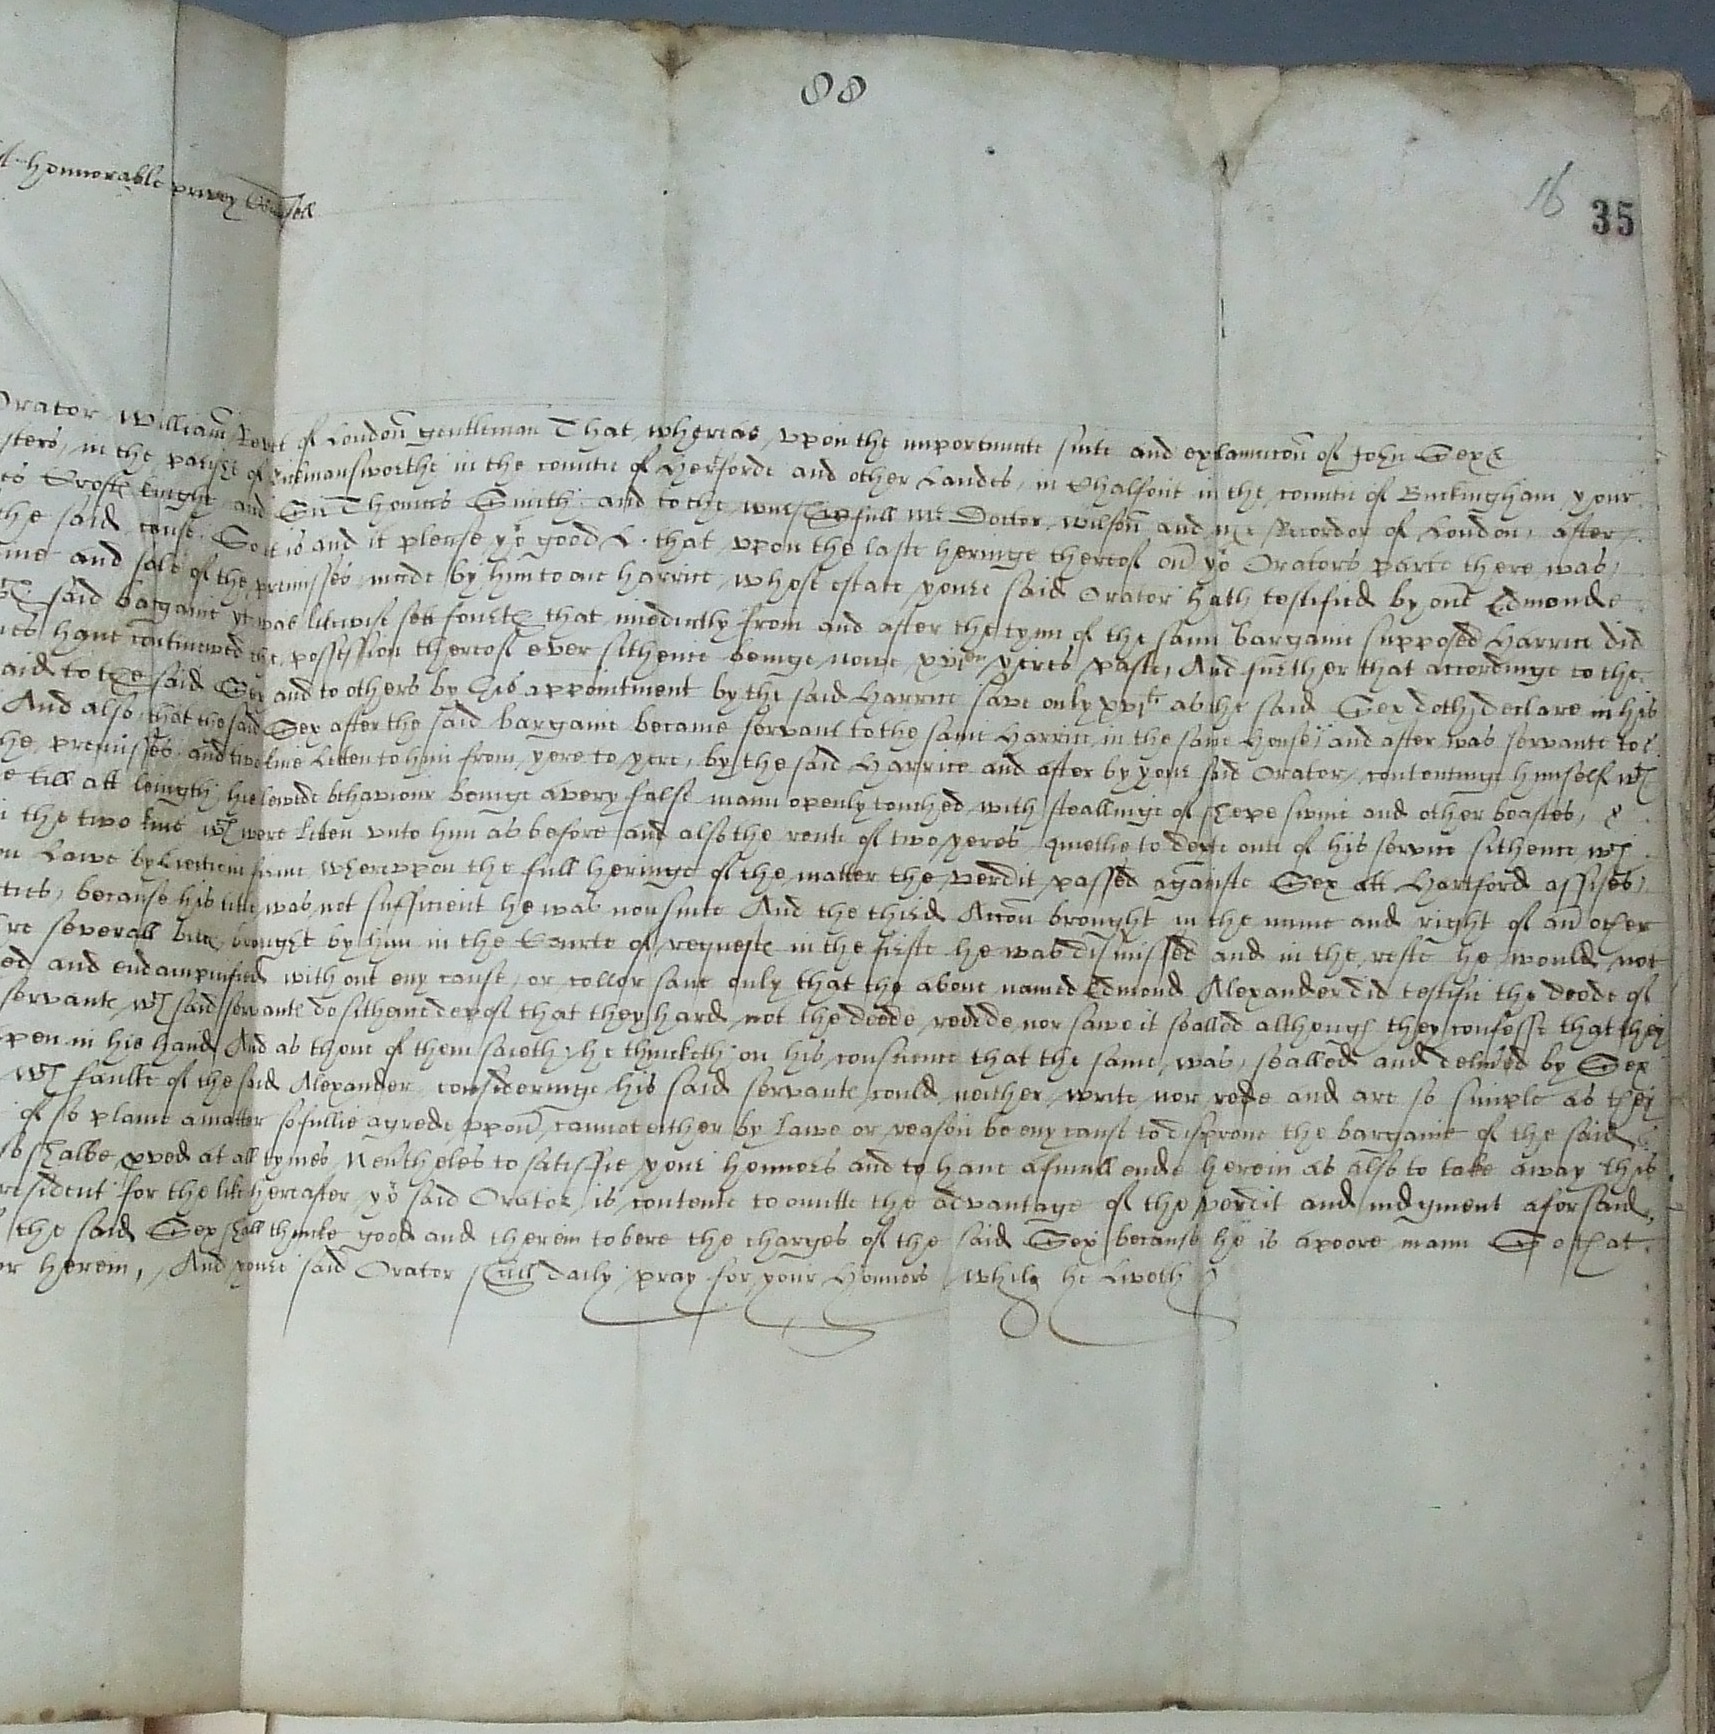 88
16 35
honnorable privey Counsell
Orator William Revet of London gentleman That whereas upon the importunate sute and exclamacon of John Gex
sters, in the parishe of Rickmansworthe in the countie of Herforde and other Landes, in Chalfont in the countie of Buckingham your
Crofte knight and Sir Thomas Smith and to the wurshipfull Mr Doctor Wilson and Mr Recordor of London, after
the said cause. So it is and it please yor good L. that upon the laste heringe thereof on yor Orators parte there was,
and sale of the premisses made by him to one Harrice, whose estate youre said Orator hath testified by one Edmonde
said bargaine yt was likewise sett fourth that imediatly from and after the tyme of the same bargaine supposed Harrice did
have contineued the possession thereof ever sithence beinge nowe xvien yeres paste, And further that accordinge to the
said to the said Gex and to others by his appointment by the said Harrice save only xvjli as the said Gex doth declare in his
And also, that the said Gex after the said bargaine became servant to the same Harrice in the same house, and after was servante to
the premisses and two kine Letten to him from yere to yere, by the said Harrice and after by your said Orator, contentinge himself wth
till att leingth his lewde behaviour beinge a very false mann openly touched with steallinge of shepe swine and other beastes, &
the two kine wch were Letten unto him as before and also the rente of two yeres quethe to dette one of his service sithence wch
Lawe by Eiectiom firme Whereuppon the full heringe of the matter the verdit passed againste Gex att Hartford assises,
because his title was not sufficient he was nonsuite And the third Accon brought in the name and right of an other
severall billes brought by him in the Courte of requeste in the firste he was dismissed and in the reste he would not
and endampnified with out eny cause, or collor save only that the above named Edmond Alexander did testifie the deede of
servante wch said servante do sithence depose that they hard not the deede redde nor sawe it sealled although they confesse that they
pen in his hand And as thone of them saieth, he thincketh on his conscience that the same was, sealled and delivred by Gex
wch faulte of the said Alexander consideringe his said servante could neither write nor rede and are so simple as they
of so plaine a matter so fullie agrede uppon, cannot either by Lawe or reason be eny cause to disprove the bargaine of the said
shalbe pved at all tymes Nevertheles to satisfie your honnors and to have a finall ende herein as also to take away this
president for the like hereafter yor said Orator is contente to omitte the advantage of the verdit and iudgment aforsaid,
the said Gex shall thincke good and therein to bere the charges of the said Gex because he is a poore mann So that
herein, And youre said Orator shall daily pray for your Honnors while he Liveth